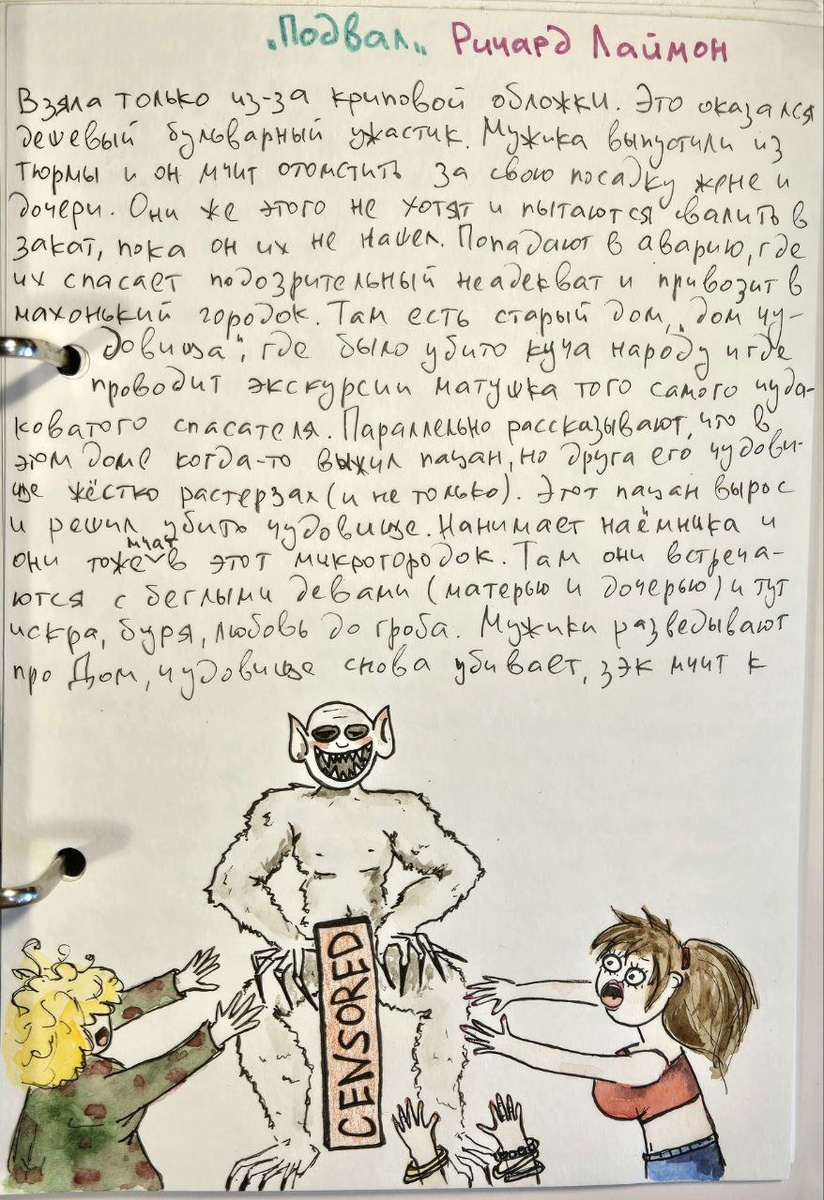 „Подвал„ Ричард Лаймон
Взяла только из-за криповой обложки. Это оказался
дешевый бульварный ужастик. Мужика выпустили из
тюрмы и он мчит отомстить за свою посадку жене и
дочери. Они же этого не хотят и пытаются свалить в
закат, пока он их не нашел. Попадают в аварию, где
их спасает подозрительный неадекват и привозит в
махонький городок. Там есть старый дом, „дом чу-
довища", где было убито куча народу и где
проводит экскурсии матушка того самого чуда-
коватого спасателя. Параллельно рассказывают, что в
этом доме когда-то выжил пацан, но друга его чудови-
ще жёстко растерзал (и не только). Этот пацан вырос
и решил убить чудовище. Нанимает наёмника и
они тоже мчат в этот микрогородок. Там они встреча-
ются с беглыми девами (матерью и дочерью) и тут
искра, буря, любовь до гроба. Мужики разведывают
про Дом, чудовище снова убивает, зэк мчит к
CENSORED